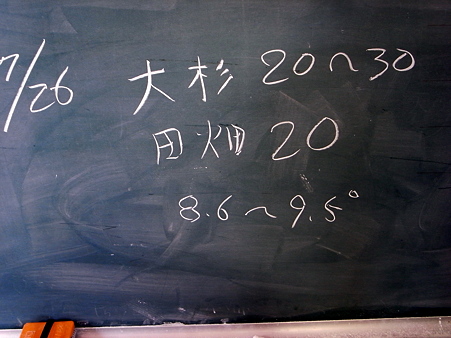 7/26 大杉 20~30
田畑 20
8.6~9.5°